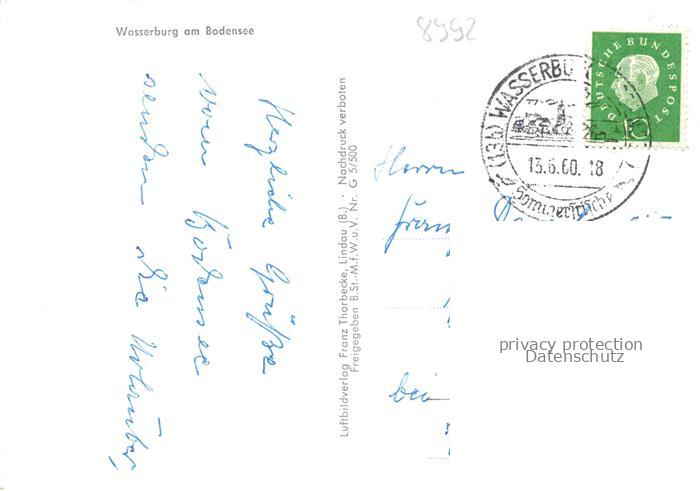 Wasserburg am Bodensee
8992
DEUTSCHE BUNDESPOST
10
(13b) WASSERBU
13.6.60. 18
Sommerfrische
Herzliche Grüße
vom Bodensee
senden die
Luftbildverlag Franz Thorbecke, Lindau (B.) · Nachdruck verboten
Freigegeben B.St.-M.f.W.u.V. Nr. G 5/500
Herrn
bei
privacy protection
Datenschutz